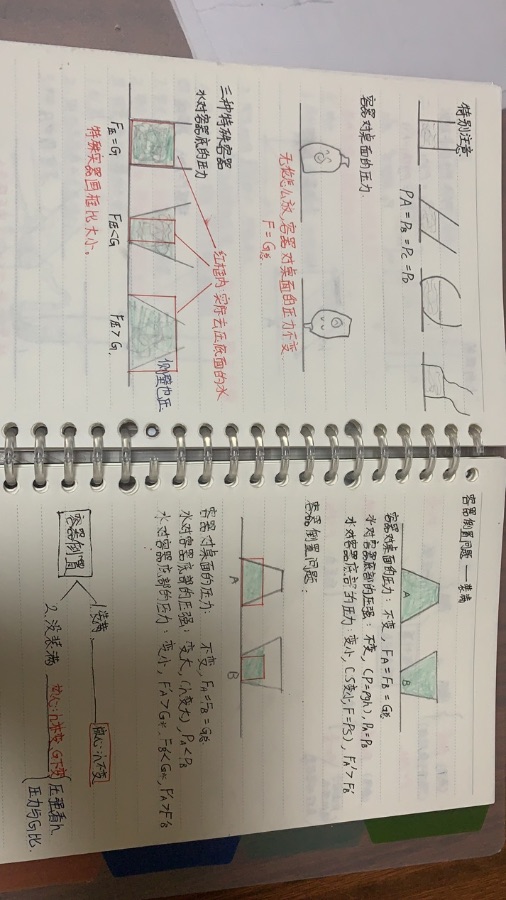 特别注意
PA = PB = PC = PD
容器对桌面的压力
无论怎么放,容器对桌面的压力不变
F = G总
三种特殊容器
水对容器底的压力
红框内 实际去压底面的水
侧壁也压
F压 = G
F压 < G
F压 > G
特殊容器画框比大小。
容器倒置问题 —— 装满
A
B
容器对桌面的压力:不变,FA = FB = G总
水对容器底部的压强:不变,(P=ρgh),PA=PB
水对容器底部的压力:变小,(S变小,F=PS),F'A>F'B
容器倒置问题:
A
B
容器对桌面的压力:不变,FA=FB=G总
水对容器底部的压强:变大,(h变大)PA<PB
水对容器底部的压力:变小,F'A>G水,F'B<G水,F'A>F'B
容器倒置
1.装满
核心:h不变
2.没装满
核心:h变,G不变
压强看h
压力与G比.